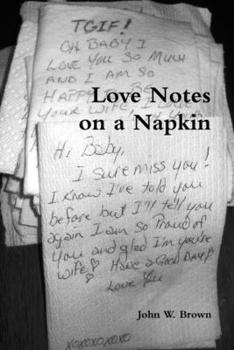 TGIF!
OH BABY I
LOVE YOU SO MUCH
AND I AM SO
HAPPY
YOUR WIFE, I LOVE
Love Notes
on a Napkin
Hi Baby,
I sure miss you!
I know I've told you
before but I'll tell you
again I am so Proud of
you and glad I'm your
wife Have a Good Day!
Love You
John W. Brown
xoxoxoxoxo